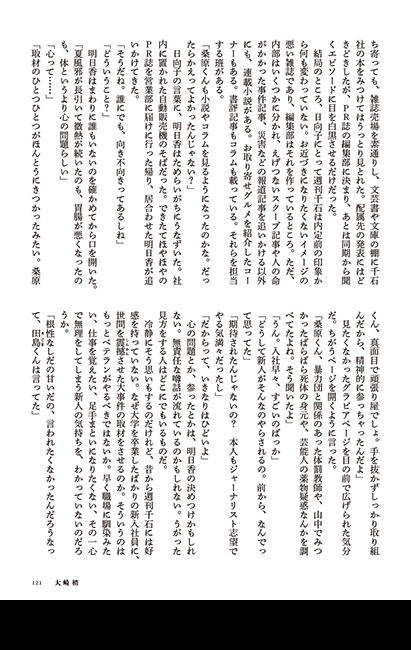 ち寄っても、雑誌売場を素通りし、文芸書や文庫の棚に千石
社の本をみつけてはうっとり見とれた。配属先の発表にはど
きどきしたが、PR誌の編集部に決まり、あとは同期から聞
くエピソードに目を白黒させるだけだった。
結局のところ、日向子にとって週刊千石は内定前の印象か
ら何も変わっていない。お近づきになりたくないイメージの
悪い雑誌であり、編集部はそれを作っているところ。ただ、
内部はいくつかに分かれ、えげつないスクープ記事や人の命
がかかった事件記事、災害などの報道記事を追いかける以外
にも、連載小説がある。お取り寄せグルメを紹介したコー
ナーもある。書評記事もコラムも載っている。それらを担当
する班がある。
「桑原くんも小説やコラムを見るようになったのかな。だっ
たらかえってよかったんじゃない?」
日向子の言葉に、明日香はためらいがちにうなずいた。社
内に置かれた自動販売機のそばだった。できたてほやほやの
PR誌を営業部に届けに行った帰り、居合わせた明日香が追
いかけてきた。
「そうだね。誰にでも、向き不向きってあるしね」
「どういうこと?」
明日香はまわりに誰もいないのを確かめてから口を開いた。
「夏風邪が長引いて微熱が続いたのも、胃腸が悪くなったの
も、体というより心の問題らしい」
「心って……」
「取材のひとつひとつがほんとうにきつかったみたい。桑原
くん、真面目で頑張り屋でしょ。手を抜かずしっかり取り組
んだから、精神的に参っちゃったんだよ」
見たくなかったグラビアページを目の前で広げられた気分
だ。ちがうページを開くように言った。
「桑原くん、暴力団と関係のあった体罰教師や、山中でみつ
かったばらばら死体の身元や、芸能人の薬物疑惑なんかを調
べてたよね。そう聞いたよ」
「うん。入社早々、すごいのばっか」
「どうして新人がそんなのやらされるの。前から、なんでっ
て思ってた」
「期待されたんじゃないの? 本人もジャーナリスト志望で
やる気満々だったし」
「だからって、いきなりはひどいよ」
心の問題とか、参ったとかは、明日香の決めつけかもしれ
ない。無責任な噂話が流れているのかもしれない。うがった
見方をする人はどこにでもいるものだ。
冷静にそう思いもするのだけれど、昔から週刊千石には好
感を持っていない。なぜ大学を卒業したばかりの新入社員に、
世間を震撼させた大事件の取材をさせるのか。そういうのは
もっとベテランがやるべきではないか。早く職場に馴染みた
い、仕事を覚えたい、足手まといになりたくない、その一心
で無理をしてしまう新人の気持ちを、わかっていないのだろ
うか。
「根性なしだの甘いだの、言われたくなかったんだろうなっ
て、田島くんは言ってた」
121 大崎梢